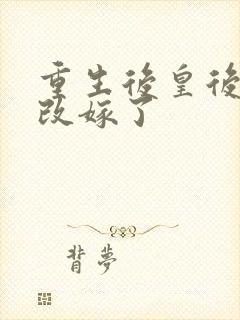 重生後皇後
改嫁了
背夢